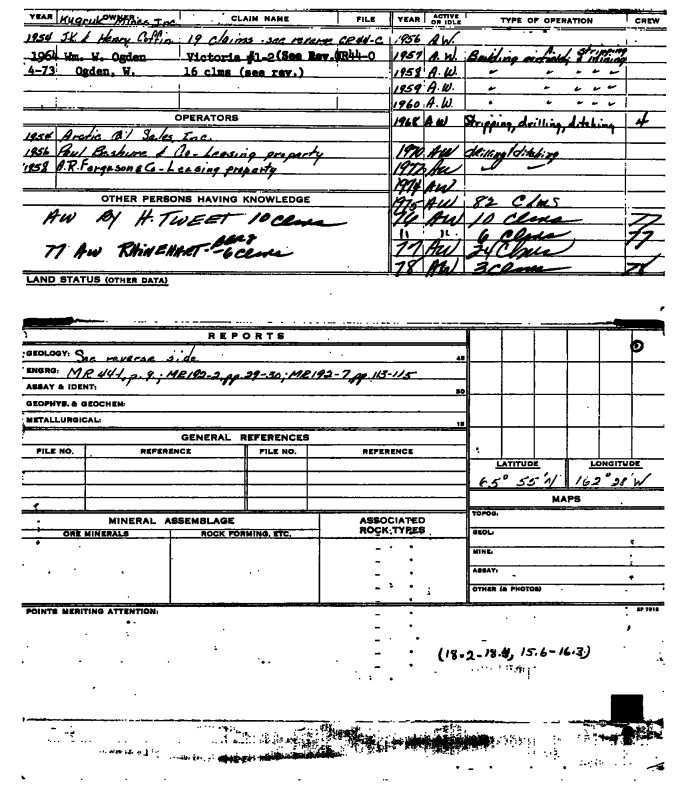 YEAR OWNER CLAIM NAME FILE
Kugruk Mines Inc
1954 J.K. & Henry Coffin 19 claims - see reverse CR44-C
1964 Wm. W. Ogden Victoria #1-2 (See Rev. MR44-O
4-73 Ogden, W. 16 clms (see rev.)
OPERATORS
1954 Arctic Oil Sales, Inc.
1956 Paul & Co - Leasing property
1958 A.R. Ferguson & Co - Leasing property
OTHER PERSONS HAVING KNOWLEDGE
AW BY H. TWEET 10 Clms
77 AW RHINEHART - BERG - 6 clms
LAND STATUS (OTHER DATA)
YEAR ACTIVE OR IDLE TYPE OF OPERATION CREW
1956 A.W.
1957 A.W. Building stripping & mining
1958 A.W. " " " "
1959 A.W. " " " "
1960 A.W. " " " "
1968 AW Stripping, drilling, ditching 4
1970 AW drilling/ditching
1972 AW
1974 AW
1975 AW 82 Clms
76 AW 10 Clms 77
" " 6 Clms 77
77 AW 24 Clms
78 AW 3 Clms 78
REPORTS
GEOLOGY: See reverse side
ENGRG: MR 44-1, p. 9; MR192-2, pp. 29-30; MR192-7, pp. 113-115
ASSAY & IDENT:
GEOPHYS. & GEOCHEM:
METALLURGICAL:
GENERAL REFERENCES
FILE NO. REFERENCE FILE NO. REFERENCE
LATITUDE LONGITUDE
65° 55' N 162° 28' W
MAPS
TOPOG:
GEOL:
MINE:
ASSAY:
OTHER (& PHOTOS)
MINERAL ASSEMBLAGE ASSOCIATED ROCK TYPES
ORE MINERALS ROCK FORMING, ETC.
POINTS MERITING ATTENTION:
(18.2-18.4, 15.6-16.3)